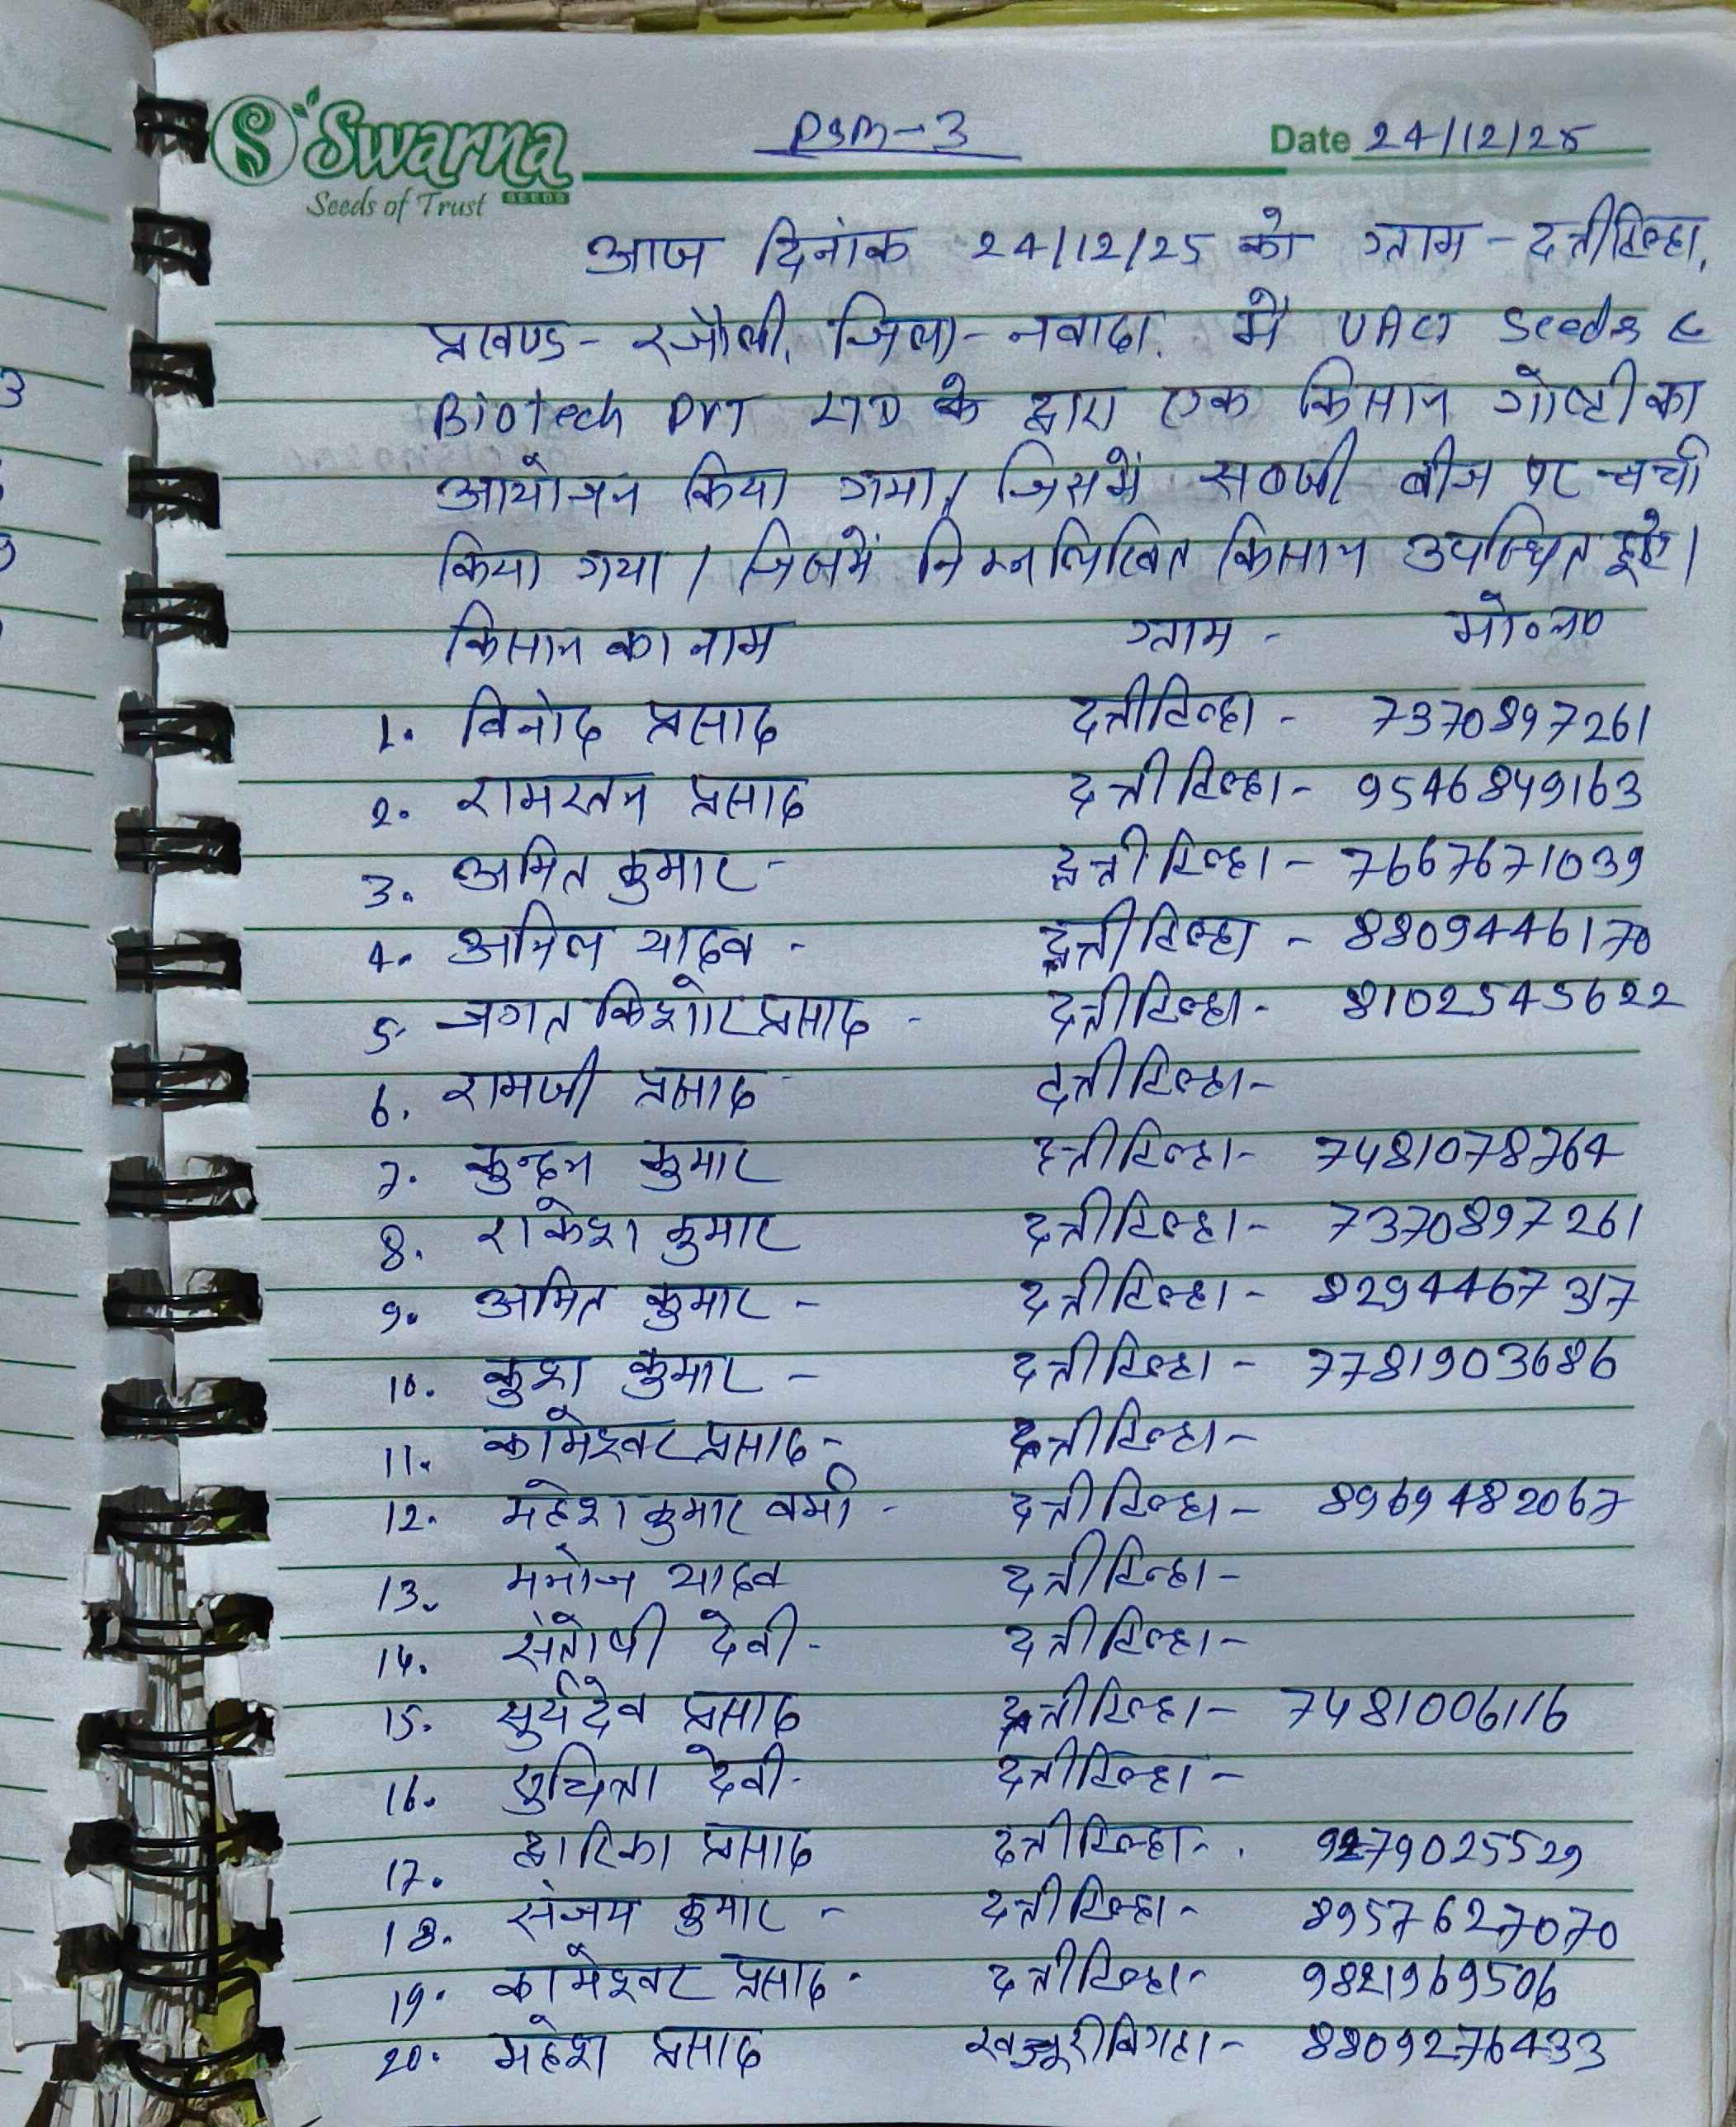 Swarna
Seeds of Trust SEEDS
PSM-3
Date 24/12/25
आज दिनांक 24/12/25 को ग्राम - दत्तीटिल्हा,
प्रखण्ड - रजौली, जिला - नवादा. में UAG Seeds &
Biotech PVT LTD के द्वारा एक किसान गोष्टी का
आयोजन किया गया। जिसमें सब्जी बीज पर चर्चा
किया गया। जिसमें निम्नलिखित किसान उपस्थित हुए।
किसान का नाम ग्राम - मो०न०
1. विनोद प्रसाद दत्तीटिल्हा - 7370897261
2. रामरतन प्रसाद दत्तीटिल्हा - 9546849163
3. अमित कुमार - दत्तीटिल्हा - 7667671039
4. अनिल यादव - दत्तीटिल्हा - 8809446170
5. जगत किशोर प्रसाद - दत्तीटिल्हा - 8102545622
6. रामजी प्रसाद दत्तीटिल्हा -
7. कुन्दन कुमार दत्तीटिल्हा - 7481078764
8. राकेश कुमार दत्तीटिल्हा - 7370897261
9. अमित कुमार - दत्तीटिल्हा - 8294467317
10. कुश कुमार - दत्तीटिल्हा - 7781903686
11. कामेश्वर प्रसाद - दत्तीटिल्हा -
12. महेश कुमार वर्मा - दत्तीटिल्हा - 8969482067
13. मनोज यादव दत्तीटिल्हा -
14. संतोषी देवी - दत्तीटिल्हा -
15. सुर्यदेव प्रसाद दत्तीटिल्हा - 7481006116
16. सुचिता देवी - दत्तीटिल्हा -
17. द्वारिका प्रसाद दत्तीटिल्हा - 9279025529
18. संजय कुमार - दत्तीटिल्हा - 8957627070
19. कामेश्वर प्रसाद - दत्तीटिल्हा - 9821969506
20. महेश प्रसाद खजूरीबिगहा - 8809276433